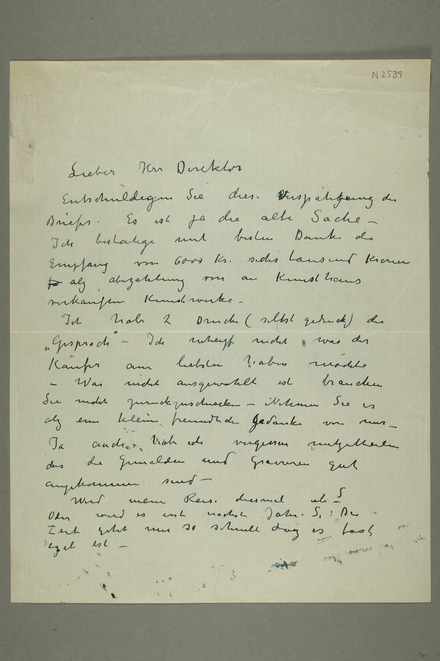 N 2539
Lieber Herr Direktor
Entschuldigen Sie dies. Verspätigung des
Briefes. Es ist ja die alte Sache –
Ich bestätige mit besten Danke des
Empfang von 6000 Kr. sechs tausend Kronen
als abzahlung von an Kunsthaus
verkauften Kunstwerke –
Ich habe 2 Drucke (selbst gedruckt) des
„Gespräch" – Ich nicht was der
Käufer am liebsten haben möchte
– Was nicht ausgewählt ist brauchen
Sie nicht zurückzuschicken – Nehmen Sie es
als eine kleine freundliche Gedanke von mir –
Ja auch habe ich vergessen mitzutheilen
das die Gemälden und Gravuren gut
angekommen sind –
Wird meine Reise diesmal
Oder wird es erst nächste Jahr. Die
Zeit geht mir so schnell dass es fast
egal ist –